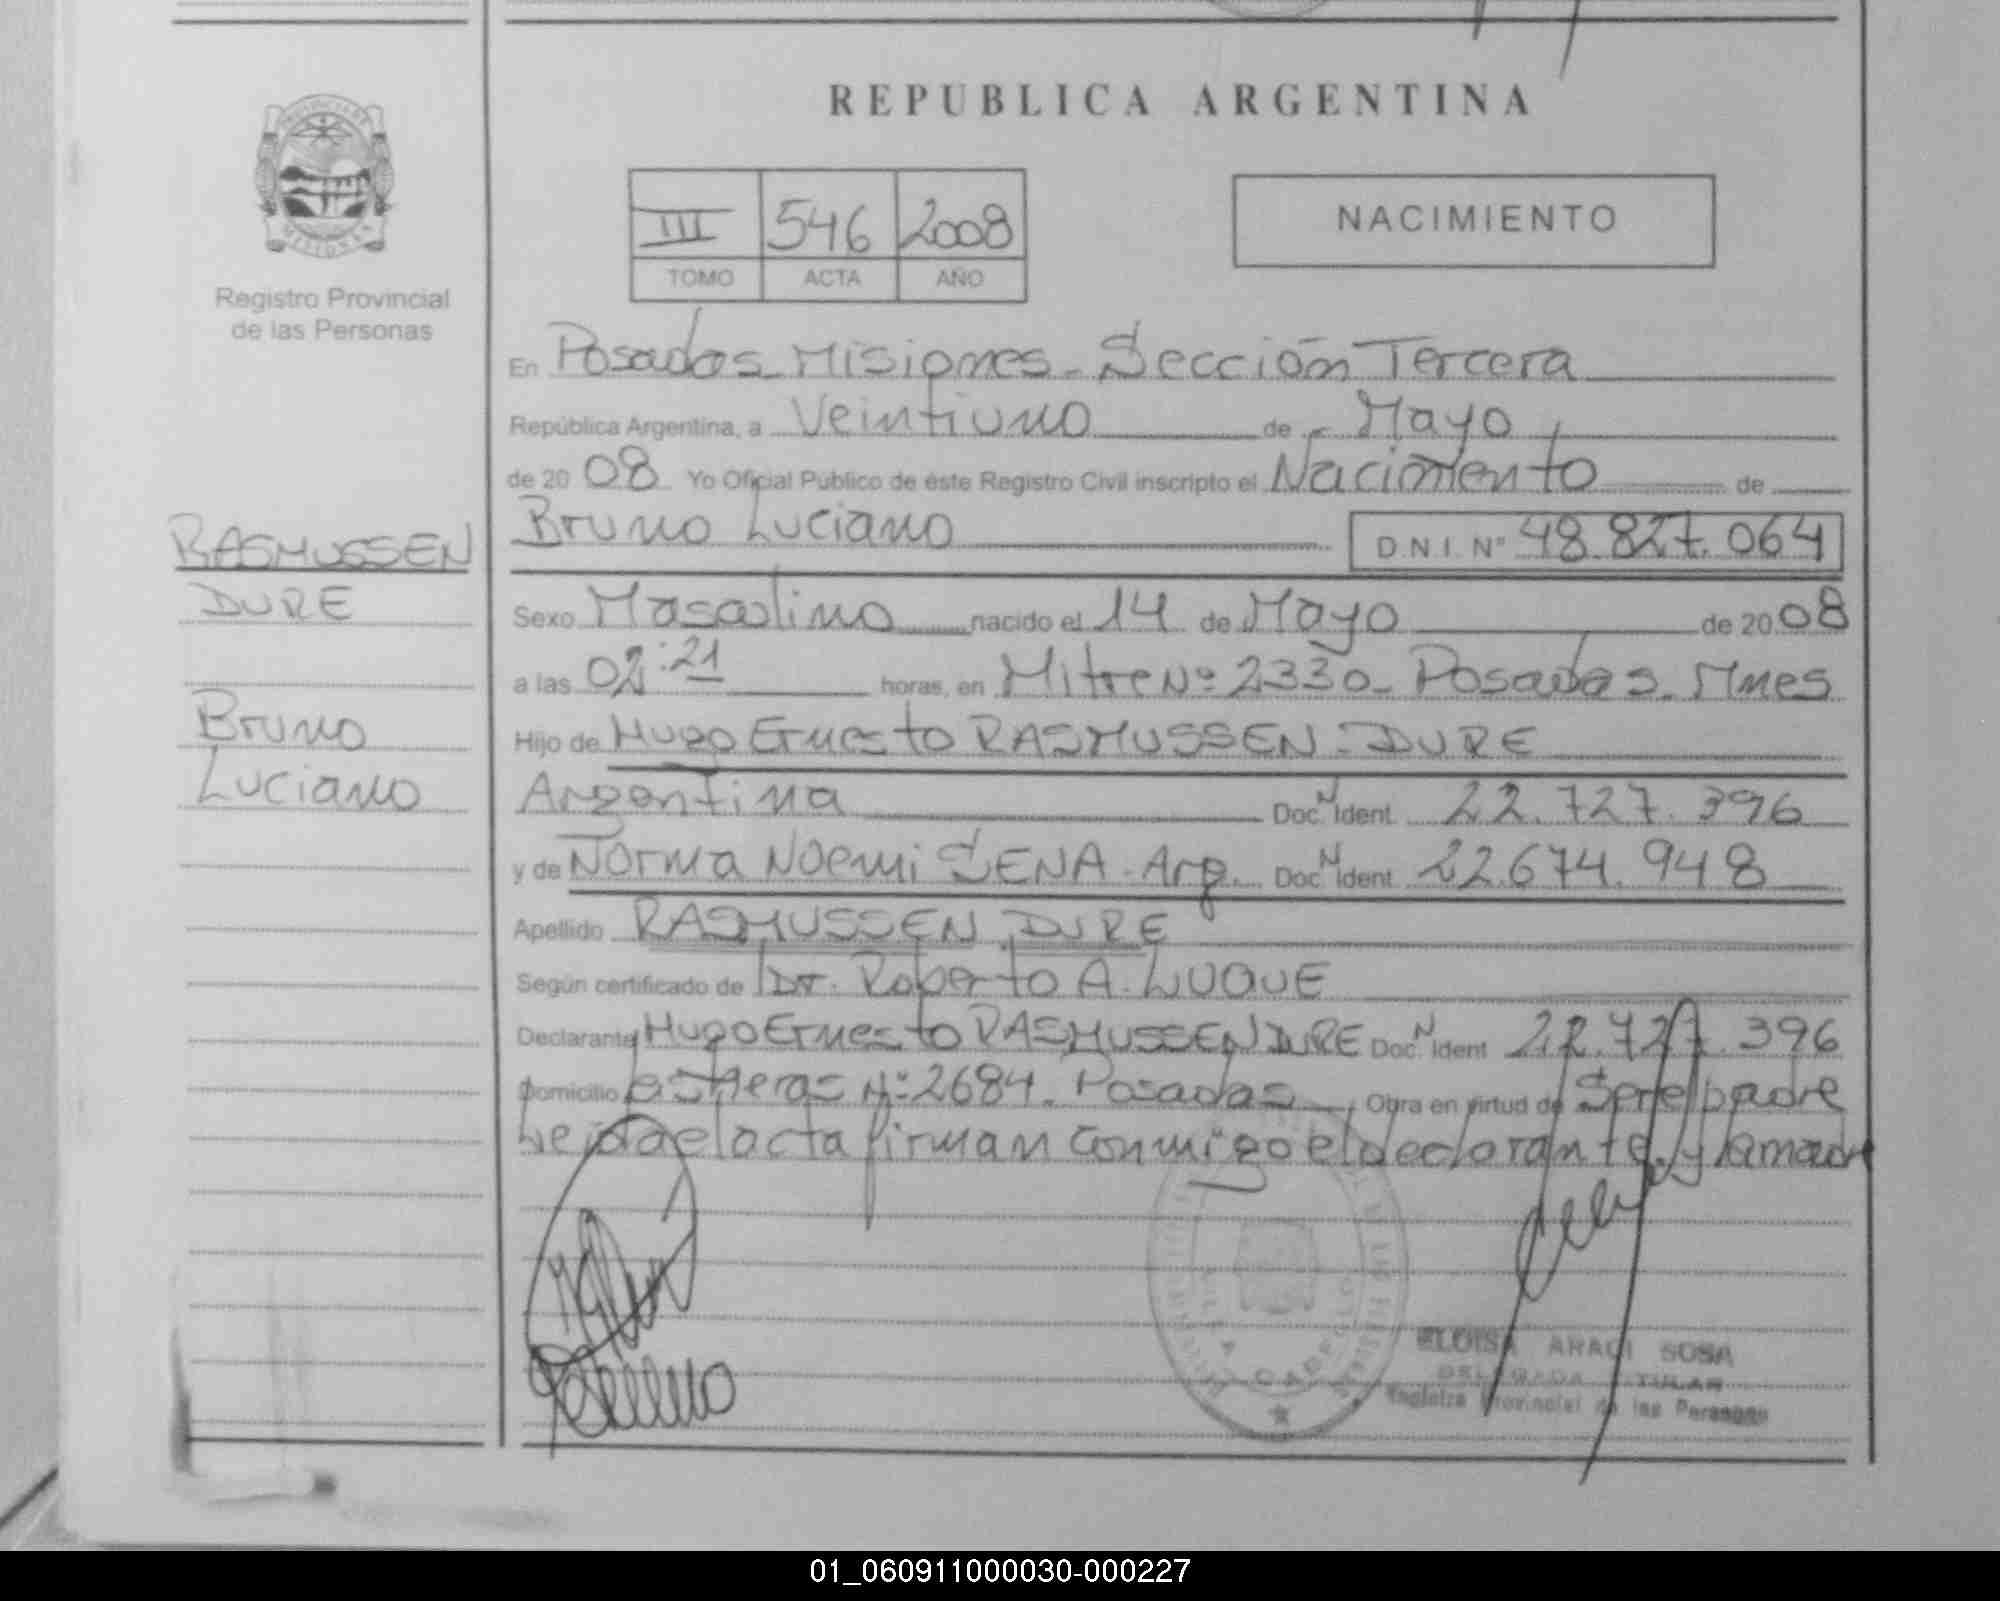 REPUBLICA ARGENTINA
III 546 2008
TOMO ACTA AÑO
NACIMIENTO
Registro Provincial
de las Personas
RASMUSSEN
DURE
Bruno
Luciano
En Posadas Misiones - Sección Tercera
República Argentina, a Veintiuno de Mayo
de 2008 Yo Oficial Público de éste Registro Civil inscripto el Nacimiento de
Bruno Luciano D.N.I. Nº 48.827.064
Sexo Masculino nacido el 14 de Mayo de 2008
a las 02:21 horas, en Mitre Nº 2330 - Posadas - Mnes
Hijo de Hugo Ernesto RASMUSSEN - DURE
Argentina Doc. N Ident. 22.727.396
y de Norma Noemi SENA - Arg. Doc. N Ident. 22.674.948
Apellido RASMUSSEN DURE
Según certificado de Dr. Roberto A. LUQUE
Declarante Hugo Ernesto RASMUSSEN DURE Doc. N Ident 22.727.396
Domicilio Las Heras Nº 2684. Posadas Obra en virtud de Ser el padre
Leida el acta firman conmigo el declarante y la madre
ELOISA ARACI SOSA
DELEGADA TITULAR
Registro Provincial de las Personas
01_060911000030-000227